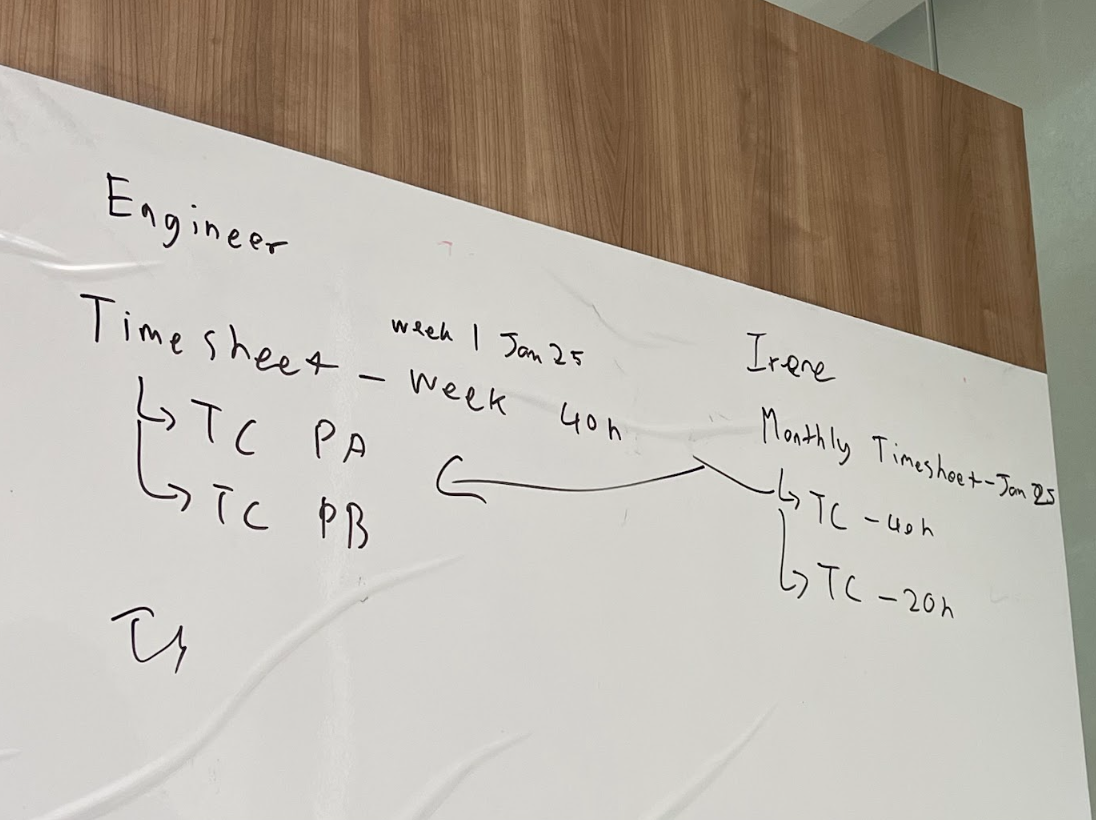 Engineer
week 1 Jan 25
Timesheet - Week 40h
↳ TC PA
↳ TC PB
Irene
Monthly Timesheet - Jan 25
↳ TC - 40h
↳ TC - 20h